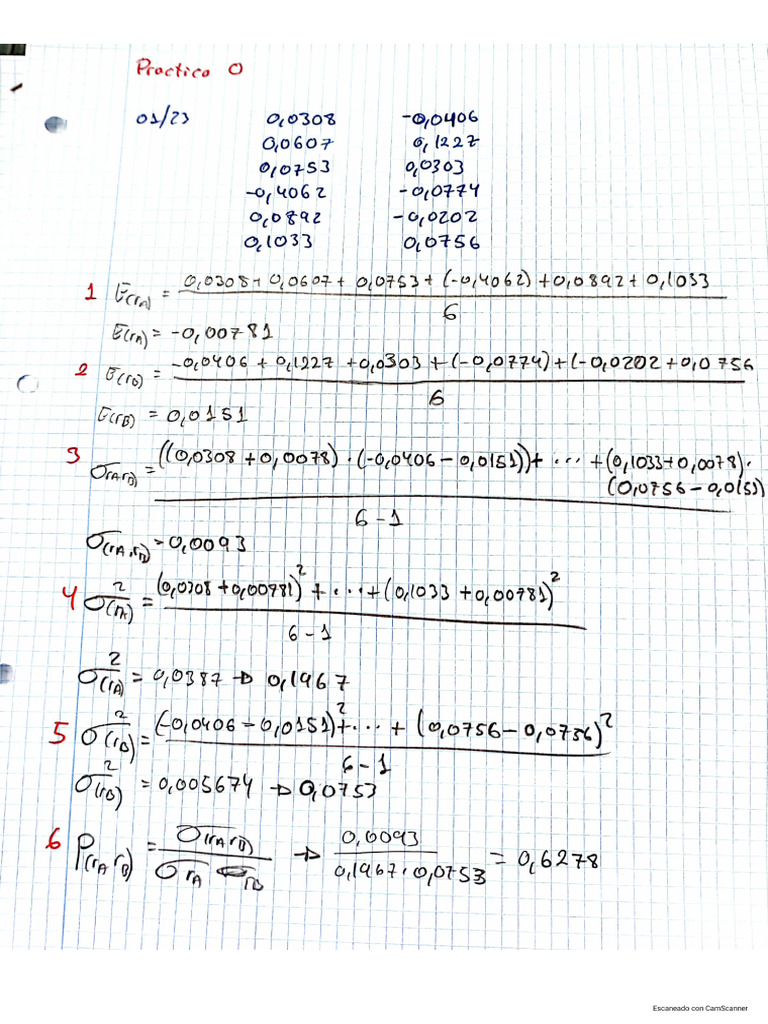 Practico 0
01/23 0,0308 -0,0406
0,0607 0,1227
0,0753 0,0303
-0,4062 -0,0774
0,0892 -0,0202
0,1033 0,0756
1 E(rA) = 0,0308 + 0,0607 + 0,0753 + (-0,4062) + 0,0892 + 0,1033
6
E(rA) = -0,00781
2 E(rB) = -0,0406 + 0,1227 + 0,0303 + (-0,0774) + (-0,0202 + 0,0756
6
E(rB) = 0,0151
3 σ(rA rB) = ((0,0308 + 0,0078) · (-0,0406 - 0,0151)) + ... + (0,1033 + 0,0078) ·
(0,0756 - 0,0151)
6 - 1
σ(rA, rB) = 0,0093
4 σ²(rA) = (0,0308 + 0,00781)² + ... + (0,1033 + 0,00781)²
6 - 1
σ²(rA) = 0,0387 → 0,1967
5 σ²(rB) = (-0,0406 - 0,0151)² + ... + (0,0756 - 0,0756)²
6 - 1
σ²(rB) = 0,005674 → 0,0753
6 P(rA rB) = σ(rA rB) → 0,0093 = 0,6278
σrA σrB 0,1967 · 0,0753
Escaneado con CamScanner